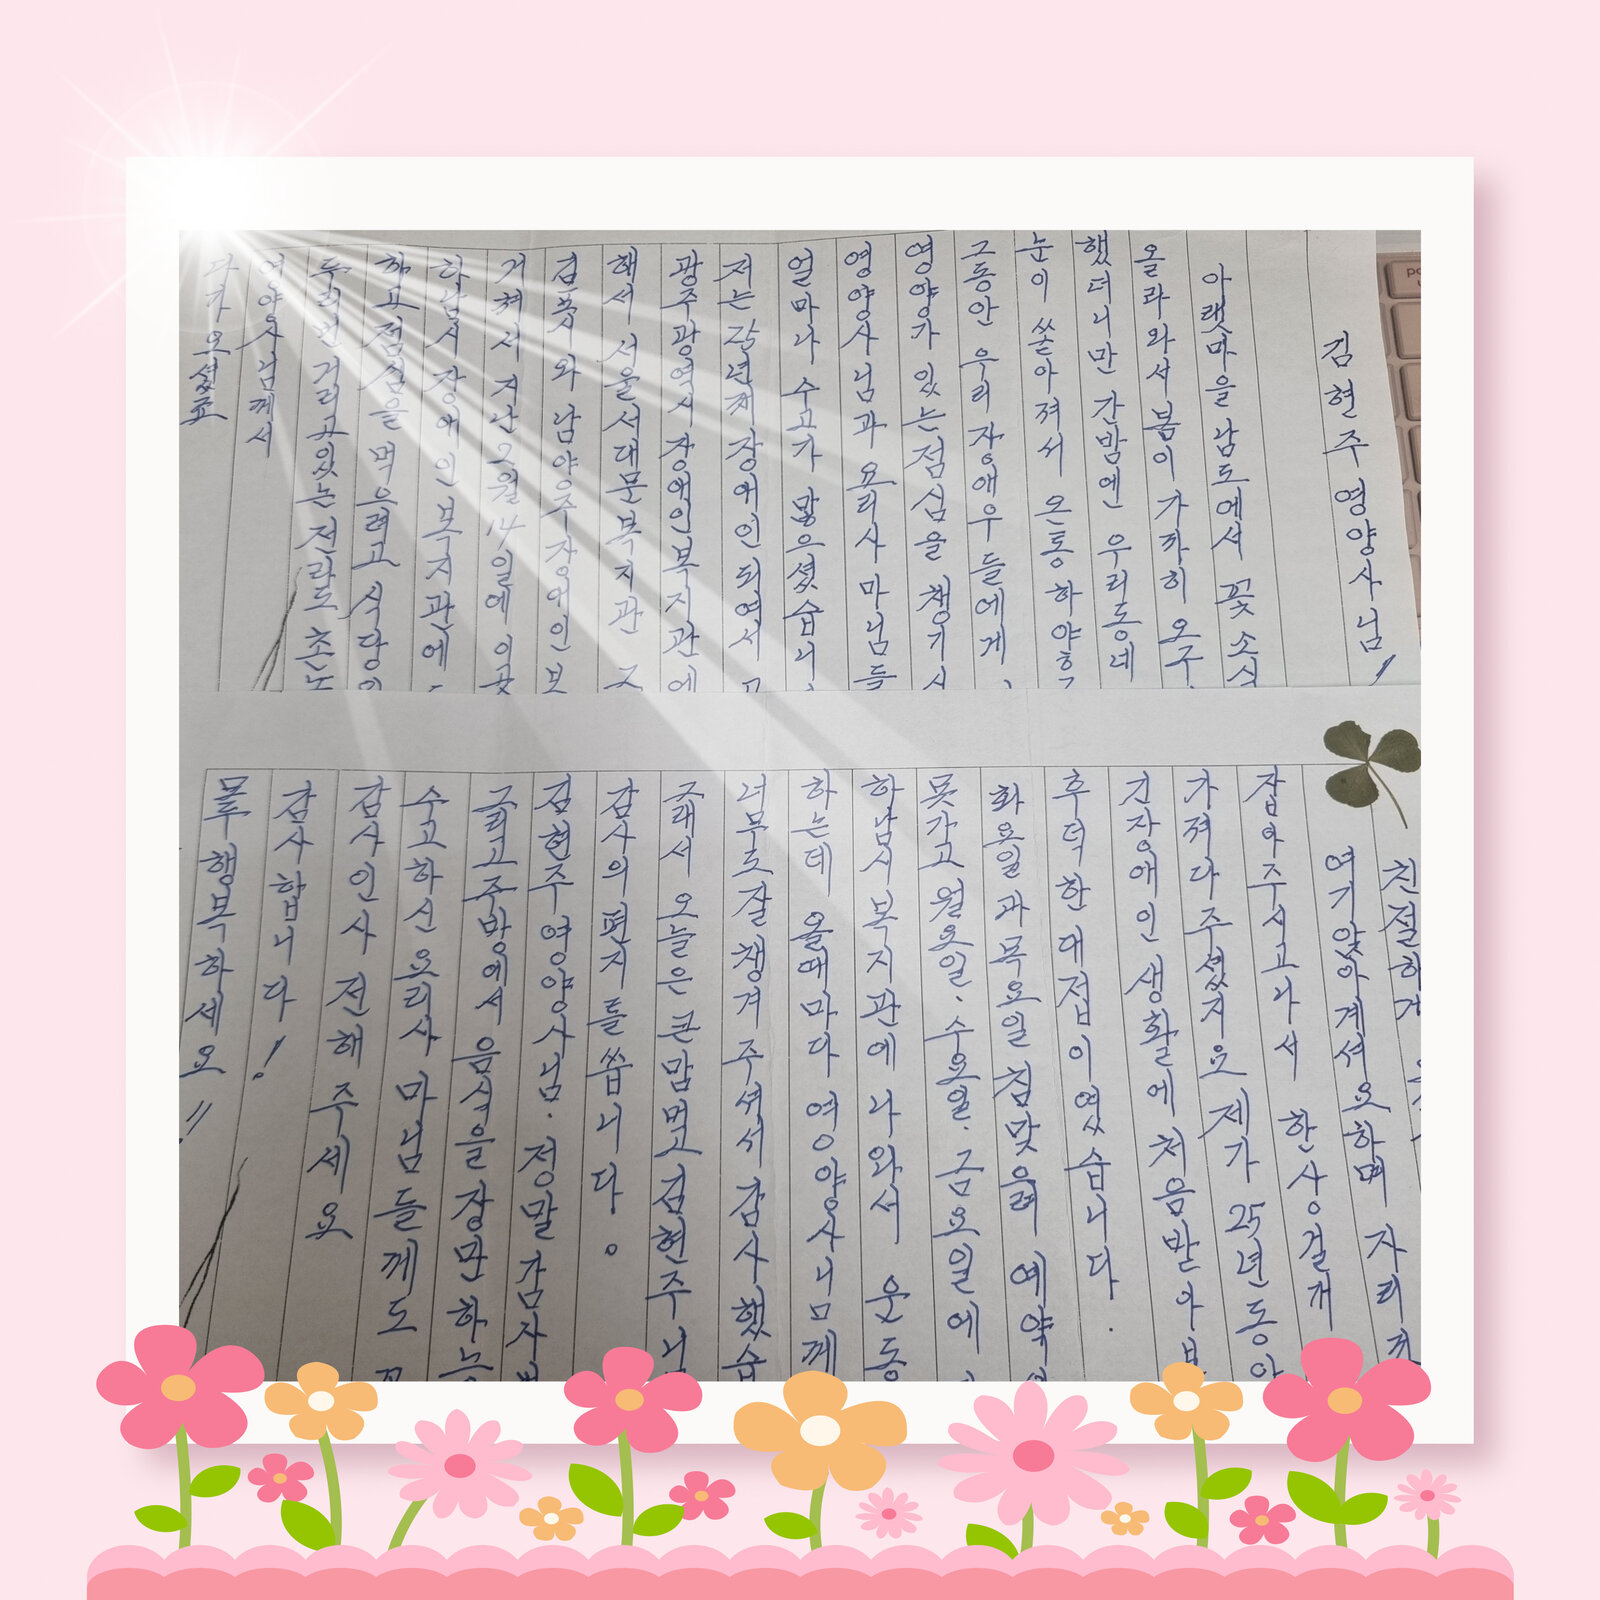 김현주 영양사님!
아랫마을 남도에서 꽃 소식
올라와서 봄이 가까히 오구
했더니만 간밤엔 우리동네
눈이 쏟아져서 온통 하야
그동안 우리 장애우들에게
영양가 있는 점심을 챙기시
영양사님과 요리사 마님들
얼마나 수고가 많으셨습니
저는 25년째 장애인 되여서
광주광역시 장애인복지관에
해서 서울서대문복지관
김포시와 남양주장애인
거쳐서 지난 2월 14일에 이곳
하남시 장애인 복지관에
하고 점심을 먹으려고 식당
두리번 거리고있는 저란도 촌
영양사님께서
다가 오셨죠
친절하게
여기앉아계셔요하며 자리
잡아주시고나서 한상걸개
가져다 주셨지요 제가 25년동안
긴장애인 생활에 처음받아
후덕한 대접이였습니다.
화요일과 목요일 침맞으려 예약
못가고 월요일. 수요일. 금요일에
하남시복지관에 나와서 운동
하는데 올때마다 영양사님께
너무도 잘챙겨주셔서 감사했습
그래서 오늘은 큰맘먹고 김현주
감사의 편지를 씁니다.
김현주 영양사님. 정말 감사
그리고 주방에서 음식을 장만하는
수고하신 요리사 마님들께도
감사인사 전해주세요
감사합니다!
모두 행복하세요!!